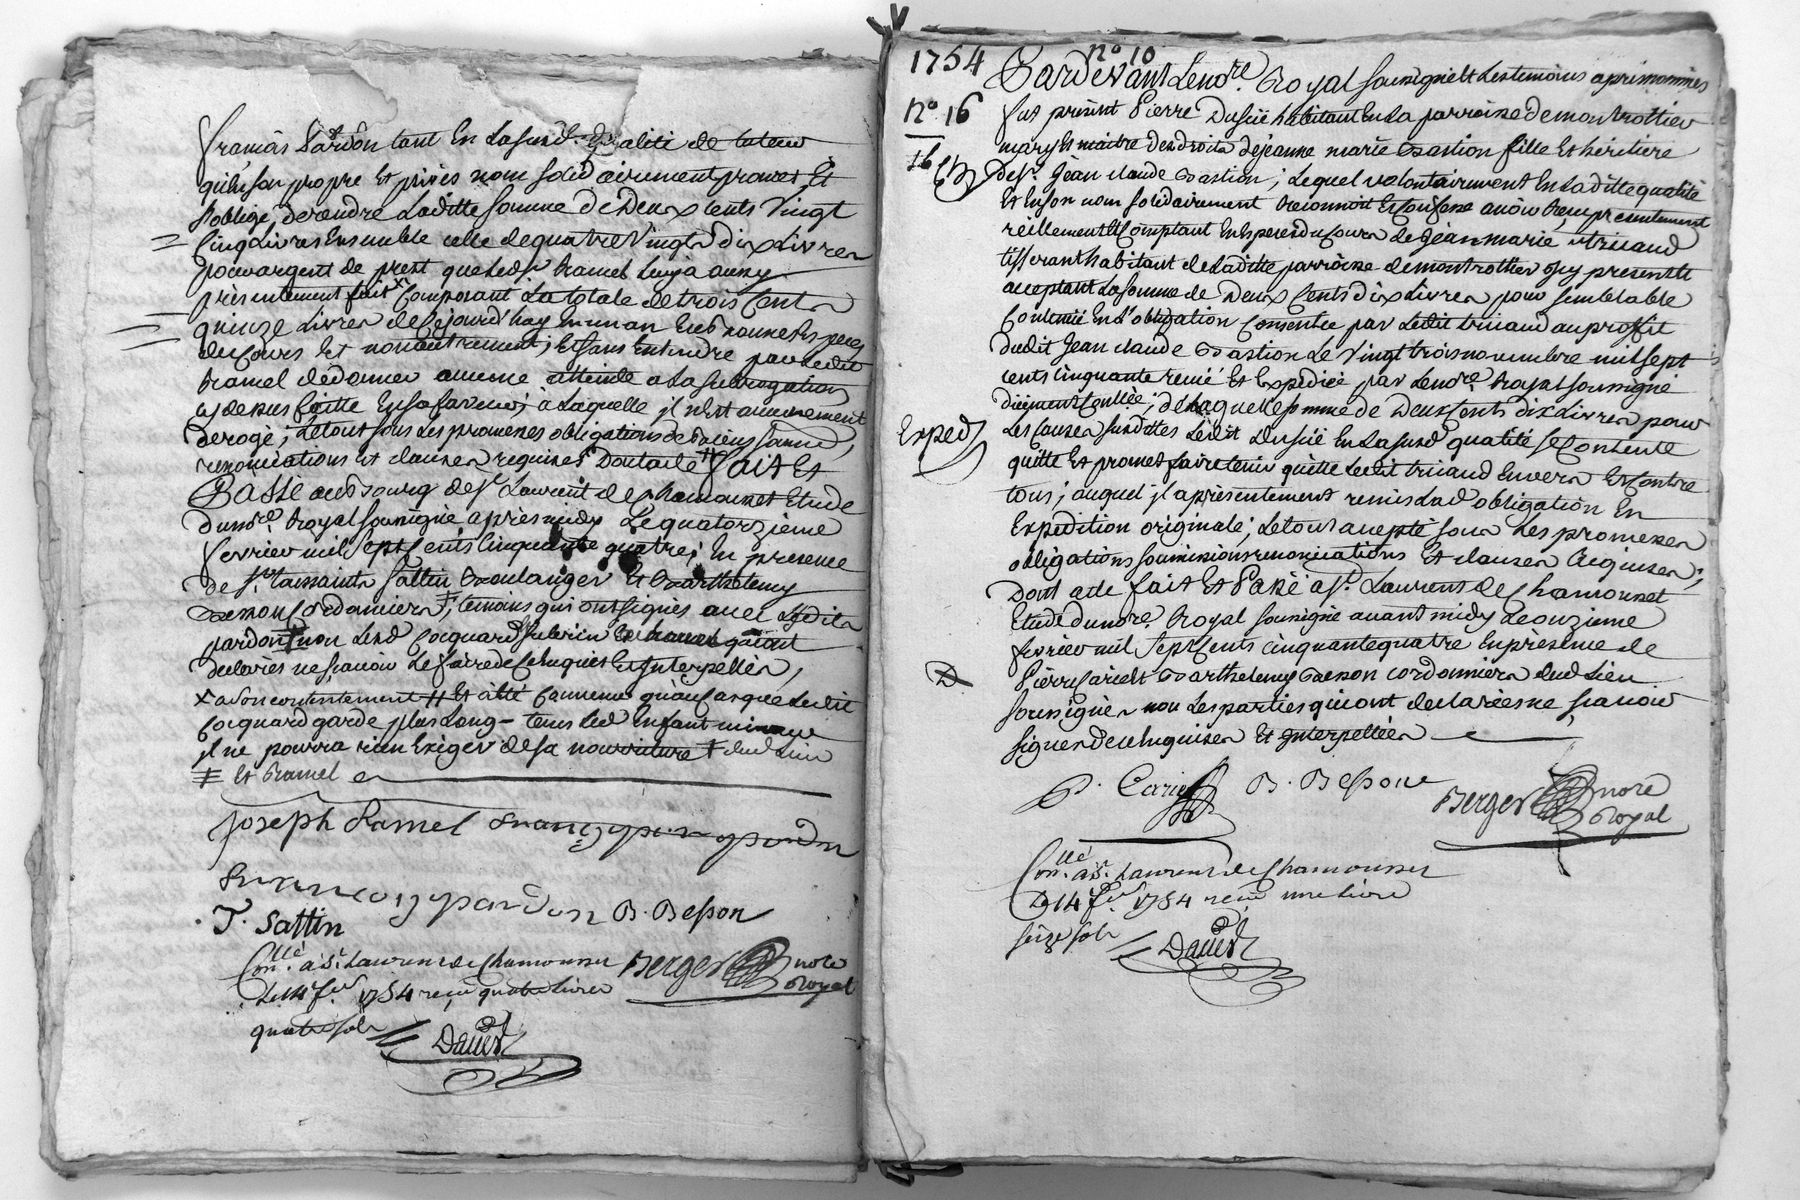 françois Pardon tant En La susd.e Qualité de tuteur
qu'en son propre Et privés nom solidairement promet Et
s'oblige, de rendre Laditte somme de Deux Cents Vingt
Cinq Livres Ensemble celle de quatre Vingts dix Livres
pour argent de prest que Led.t Ramel Luy a aussy
présentement fait x Composant La totale de trois Cents
quinze Livres de Cejourd'huy En un an En bonnes Especes
du Cours Et non autrement; Et sans Entendre par Ledit
Ramel de donner aucune atteinte a La subrogation
cy dessus faitte En sa faveur; a Laquelle il n'Est aucunement
derogé; Le tout sous Les promesses obligations de biens
renonciations Et clauses requises Dont acte # fait Et
Passé au bourg de St Laurent de chamousset Etude
du no.re Royal soussigné après midy Le quatorzieme
fevrier mil sept cents Cinquante quatre; En presence
de Sr. toussaints sattin Boulanger Et Barthelemy
Besson Cordonniers ‡; temoins qui ont signés avec Lesdits
pardon ‡ non Led. Cocquard qui ont
declarés ne sçavoir Le faire de ce Enquis Et Interpellés,
x a son contentement # Et a été Convenu qu'au Cas que Ledit
Cocquard garde plus Long-tems Led. Enfant mineur
il ne pourra rien Exiger de sa nourriture ‡ dud. Lieu
‡ Et Ramel
Joseph Ramel françoy pardon
françoy pardon B. Besson
T. Sattin
Con.llé a St. Laurens de Chamousset Berger nore
Le 14 fer. 1754 reçu quatre livres Royal
quatre sols
Dauest
1754 no 10
Pardevant Le no.re Royal soussigné Et Les temoins aprés nommés
No 16
fut présent Pierre Dussié habitant En La parroisse de montrottier
mary Et maitre des droits de jeanne marie Bastion fille Et héritiere
16
de Sr. Jean claude Bastion; Lequel volontairement En Laditte qualité
Et En son nom solidairement Reconnoit Et Confesse avoir Reçu présentement
réellement Et Comptant En Especes du Cours de jean marie triaud
tisserant habitant de Laditte parroisse de montrottier Icy présent Et
acceptant La somme de Deux Cents dix Livres pour semblable
Contenüe En L'obligation Consentie par Ledit triaud au proffit
dudit Jean claude Bastion Le Vingt trois novembre mil sept
cents Cinquante Et Expédiée par Le no.re Royal soussigné
düement Conllée; de Laquelle somme de Deux Cents dix Livres pour
Exped.
Les Causes susdittes Ledit Dussié En La susd. qualité se Contente
quitte Et promet faire tenir quitte Ledit triaud Envers Et Contre
tous; auquel il a présentement remis Lad. obligation En
Expédition originale; Le tout accepté sous Les promesses
obligations soumissions renonciations Et clauses Requises;
Dont acte fait Et Passé a St. Laurent de Chamousset
Etude du no.re Royal soussigné avant midy Le onzieme
fevrier mil sept Cents cinquante quatre En présence de
D
Pierre Cariés Et Barthelemy Besson cordonniers dud. Lieu
soussignés non Les parties qui ont declarées ne sçavoir
signer de ce Enquises Et Interpellées
P. Carie B. Besson Berger nore
Royal
Con.llé a St. Laurens de Chamousset
Le 14 fer. 1754 reçu une livre
seize sols
Dauest